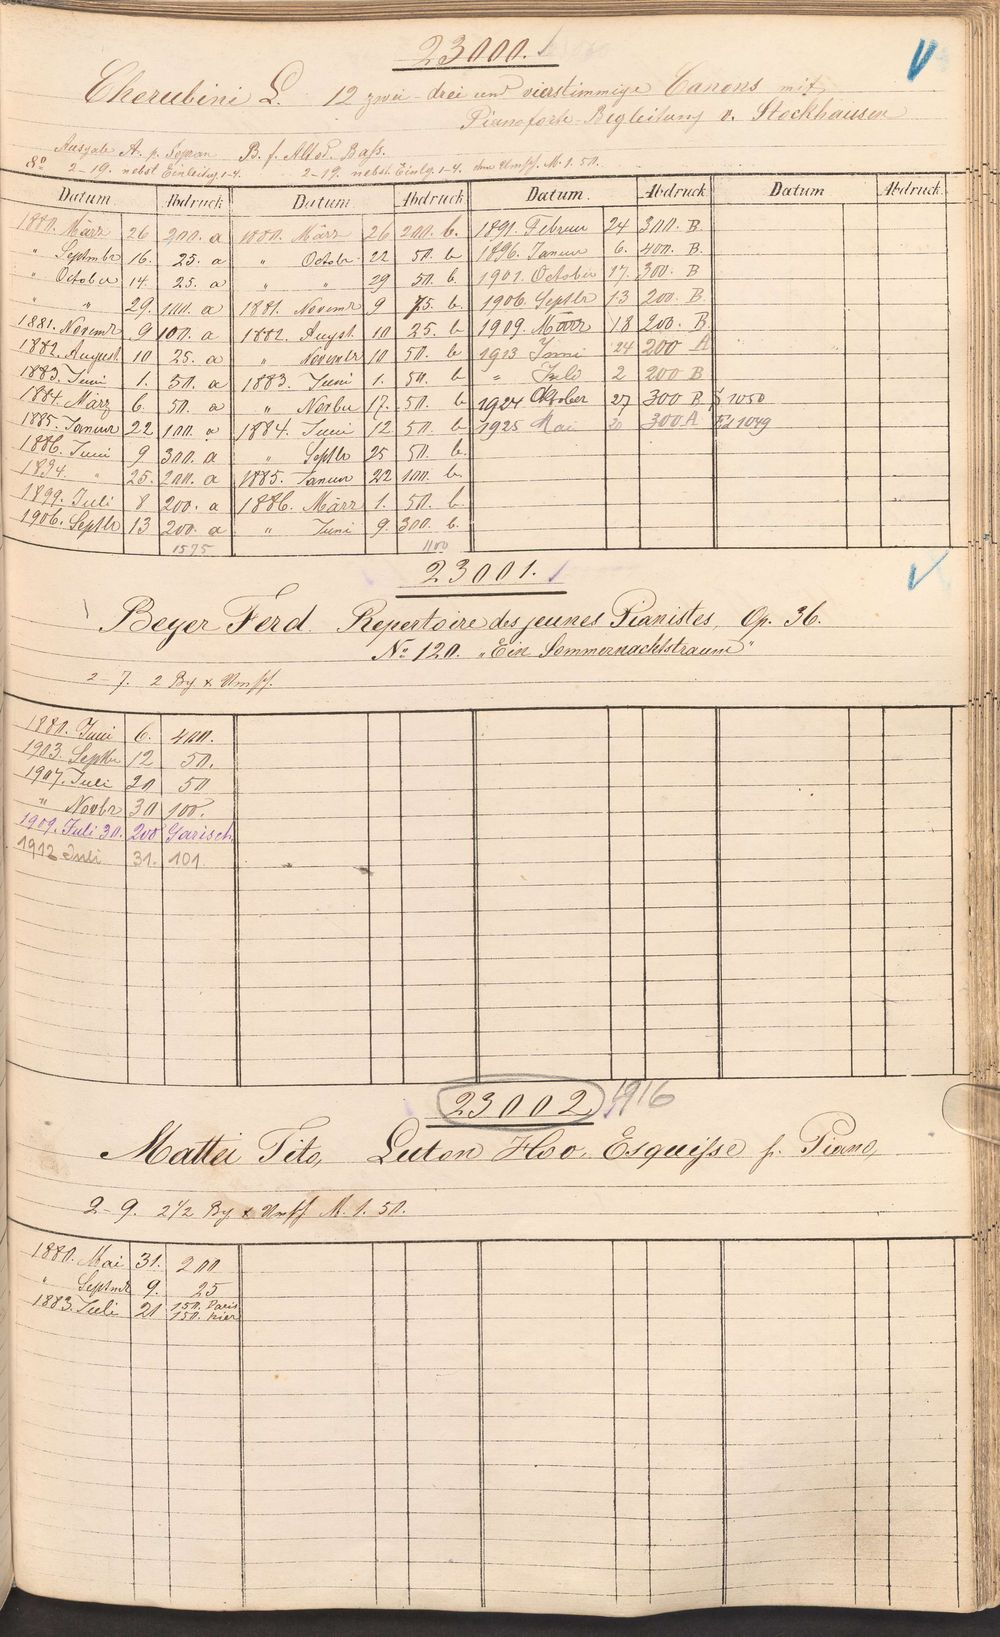 23000.
Cherubini L. 12 zwei- drei und vierstimmige Canons mit
Pianoforte-Begleitung v. Stockhausen
Ausgabe A. f. Sopran B. f. Alt od. Bass.
8º 2-19. nebst Einleitung 1-4. 2-19. nebst Einltg. 1-4. ohne Umschl. M. 1. 50.
Datum. Abdruck Datum Abdruck Datum. Abdruck. Datum Abdruck.
1880. März 26 200. a 1880. März 26 200. b. 1891. Februar 24 300. B.
" Septmbr 16. 25. a " Octobr 22 50. b 1896. Januar 6. 400. B.
" October 14. 25. a " " 29 50. b. 1901. October 17. 300. B
" " 29. 100. a 1881. Novemr 9 75. b 1906. Septbr 13 200. B.
1881. Novemr 9 100. a 1882. August. 10 25. b 1909. März 18 200. B.
1882. August. 10 25. a " Novembr 10 50. b 1913 Juni 24 200 A
1883. Juni 1. 50. a 1883. Juni 1. 50. b " Juli 2 200 B
1884. März 6. 50. a " Novbr 17. 50. b 1924 Oktober 27 300 B 1050
1885. Januar 22 100. a 1884. Juni 12 50. b 1925 Mai 20 300 A 1049
1886. Juni 9 300. a " Septbr 25 50. b.
1894. " 25. 200. a 1885. Januar 22 100. b.
1899. Juli 8 200. a 1886. März 1. 50. b.
1906. Septbr 13 200. a " Juni 9. 300. b.
1575 1100
23001.
Beyer Ferd. Repertoire des jeunes Pianistes, Op. 36.
No 120. "Ein Sommernachtstraum"
2-7. 2 Bg & Umschl.
1880. Juni 6. 400.
1903. Septbr 12 50.
1907. Juli 20 50
" Novbr 30 100.
1909. Juli 30. 200 Garisch
1912 Juli 31. 101
23002 1916
Mattei Tito, Luton Hoo. Esquisse p. Piano,
2-9. 2 1/2 Bg & Umschl M. 1. 50.
1880. Mai 31. 200
" Septmbr 9. 25
1883. Juli 21 150. Paris
150. hier